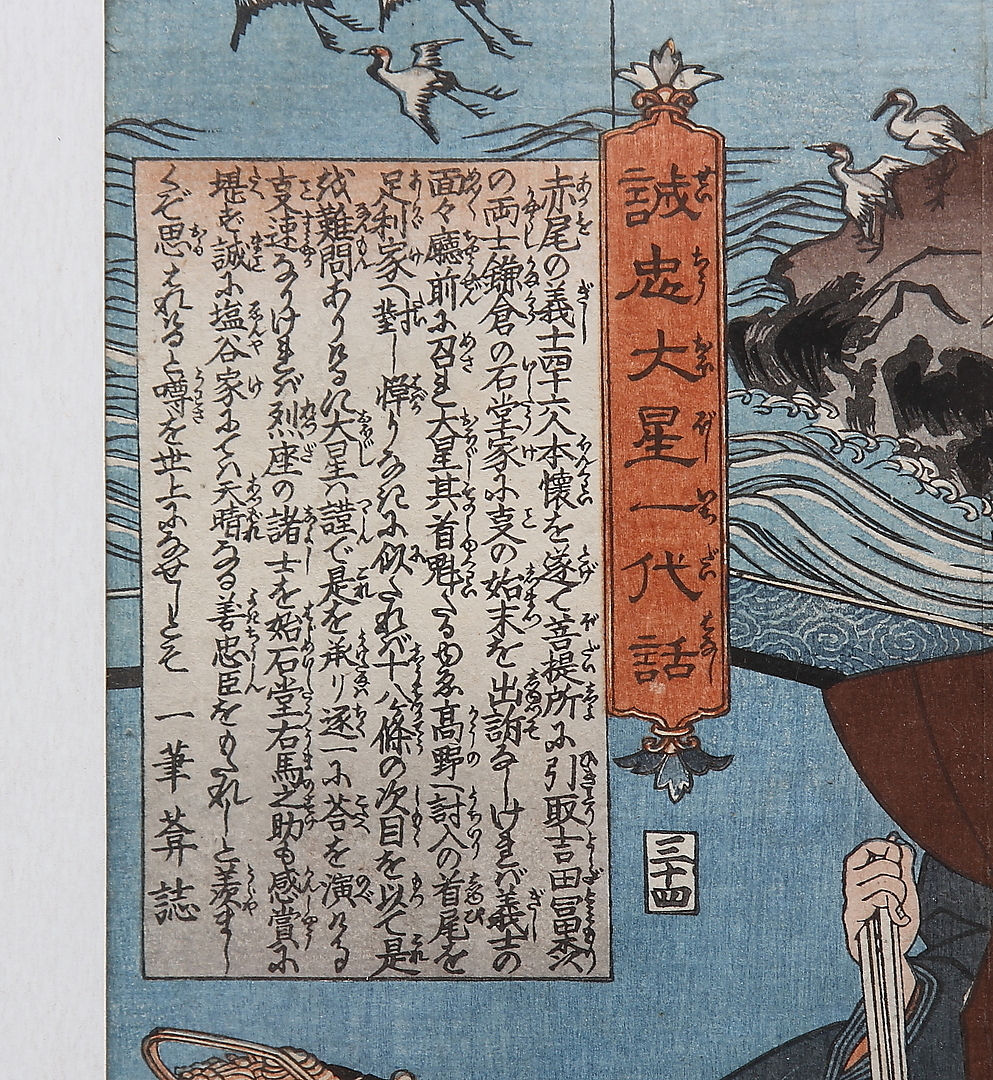 誠忠大星一代話
三十四
赤尾の義士四十六人本懐を遂て菩提所に引取吉田冨森
の両士鎌倉の石堂家に支の始末を出訴なしければ義士の
面々廳前に召れ大星其首魁たるゆゑ高野へ討入の首尾を
足利家へ対し憚りなきに似たれば十八ヶ條の次目を以て是
を難問ありけるに大星ハ謹で是を承り逐一に荅を演ける
支速なりければ烈座の諸士を始石堂右馬之助も感賞に
堪ず誠に塩谷家にてハ天晴なる善忠臣をもたれしと羨まし
くぞ思はれけると噂を世上になせしとぞ
一筆葊誌